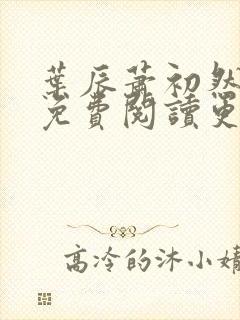 葉辰蕭初然
免費閱讀更
高冷的沐小婧